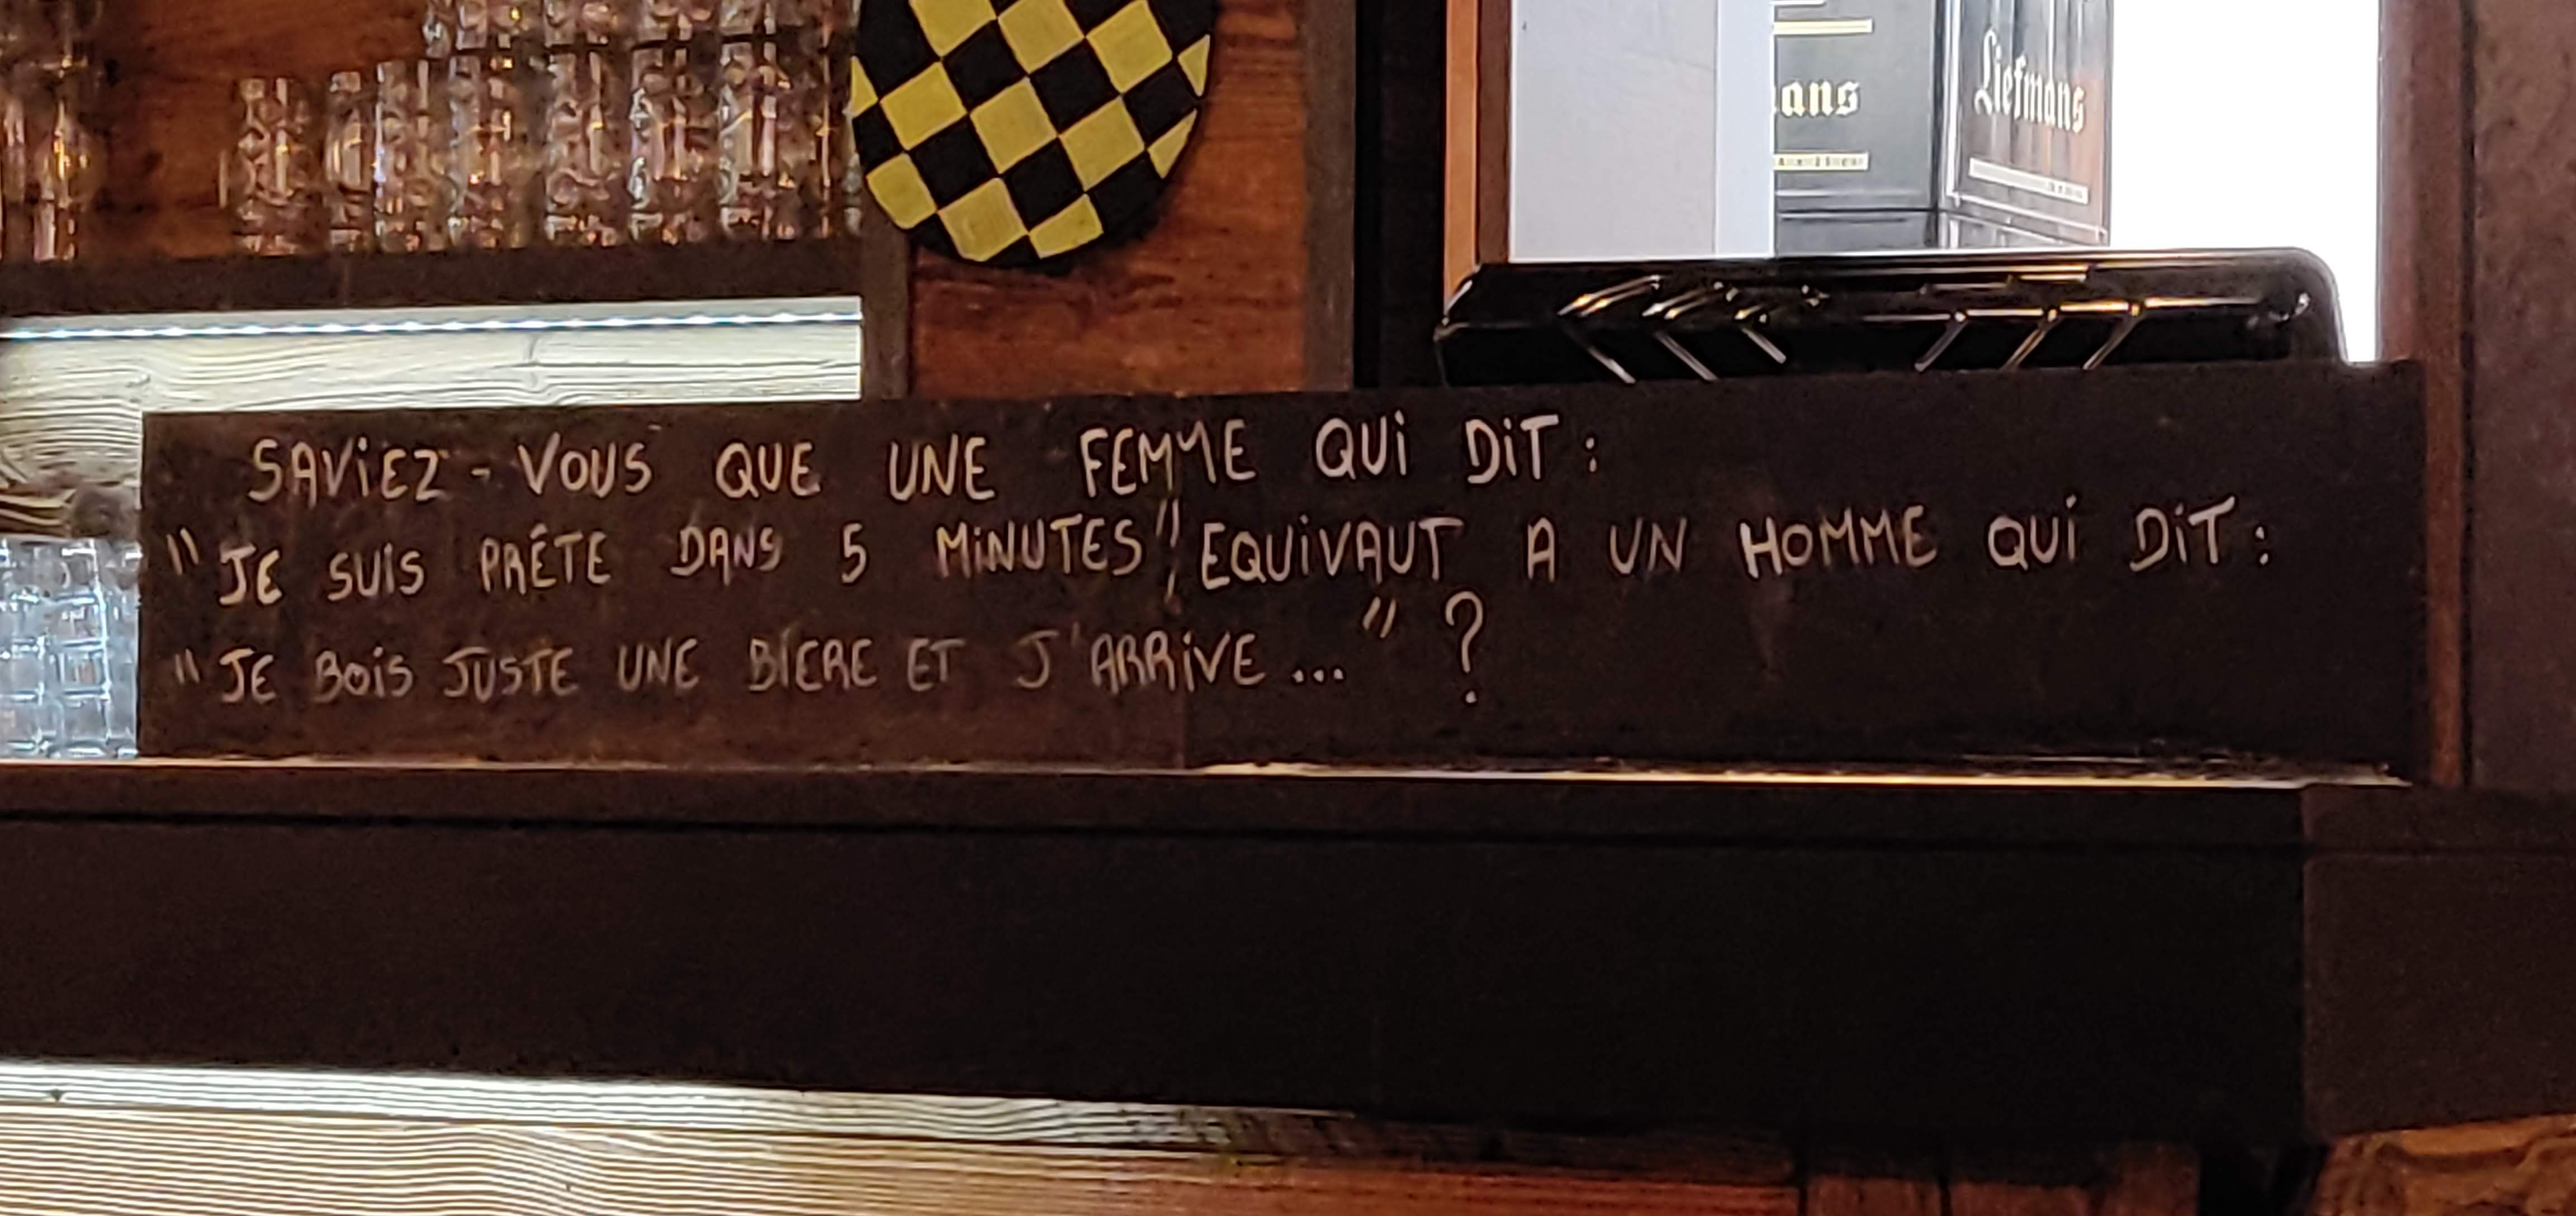 ans
Liefmans
SAViEZ - VOUS QUE UNE FEMME QUi DiT :
"JE SUIS PRÊTE DANS 5 MiNUTES" EQUiVAUT A UN HOMME QUi DiT :
"JE BOiS JUSTE UNE BIERE ET J'ARRiVE ..." ?